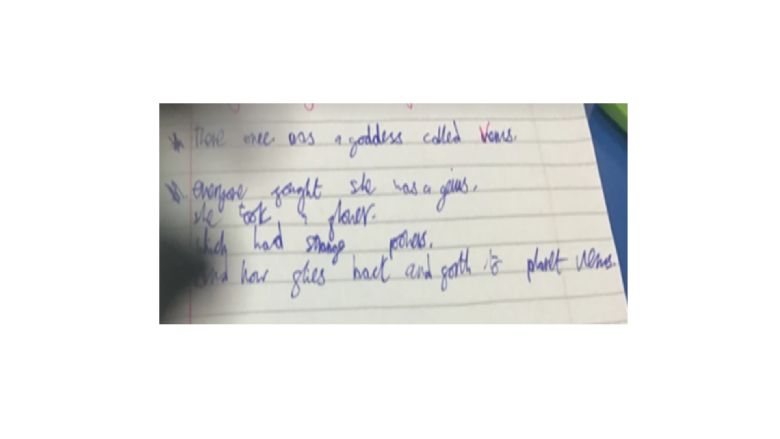 There once was a goddess called Venus.
everyone fought she was a genius.
she took a flower.
which had strange powers.
and how flies back and forth to planet venus.